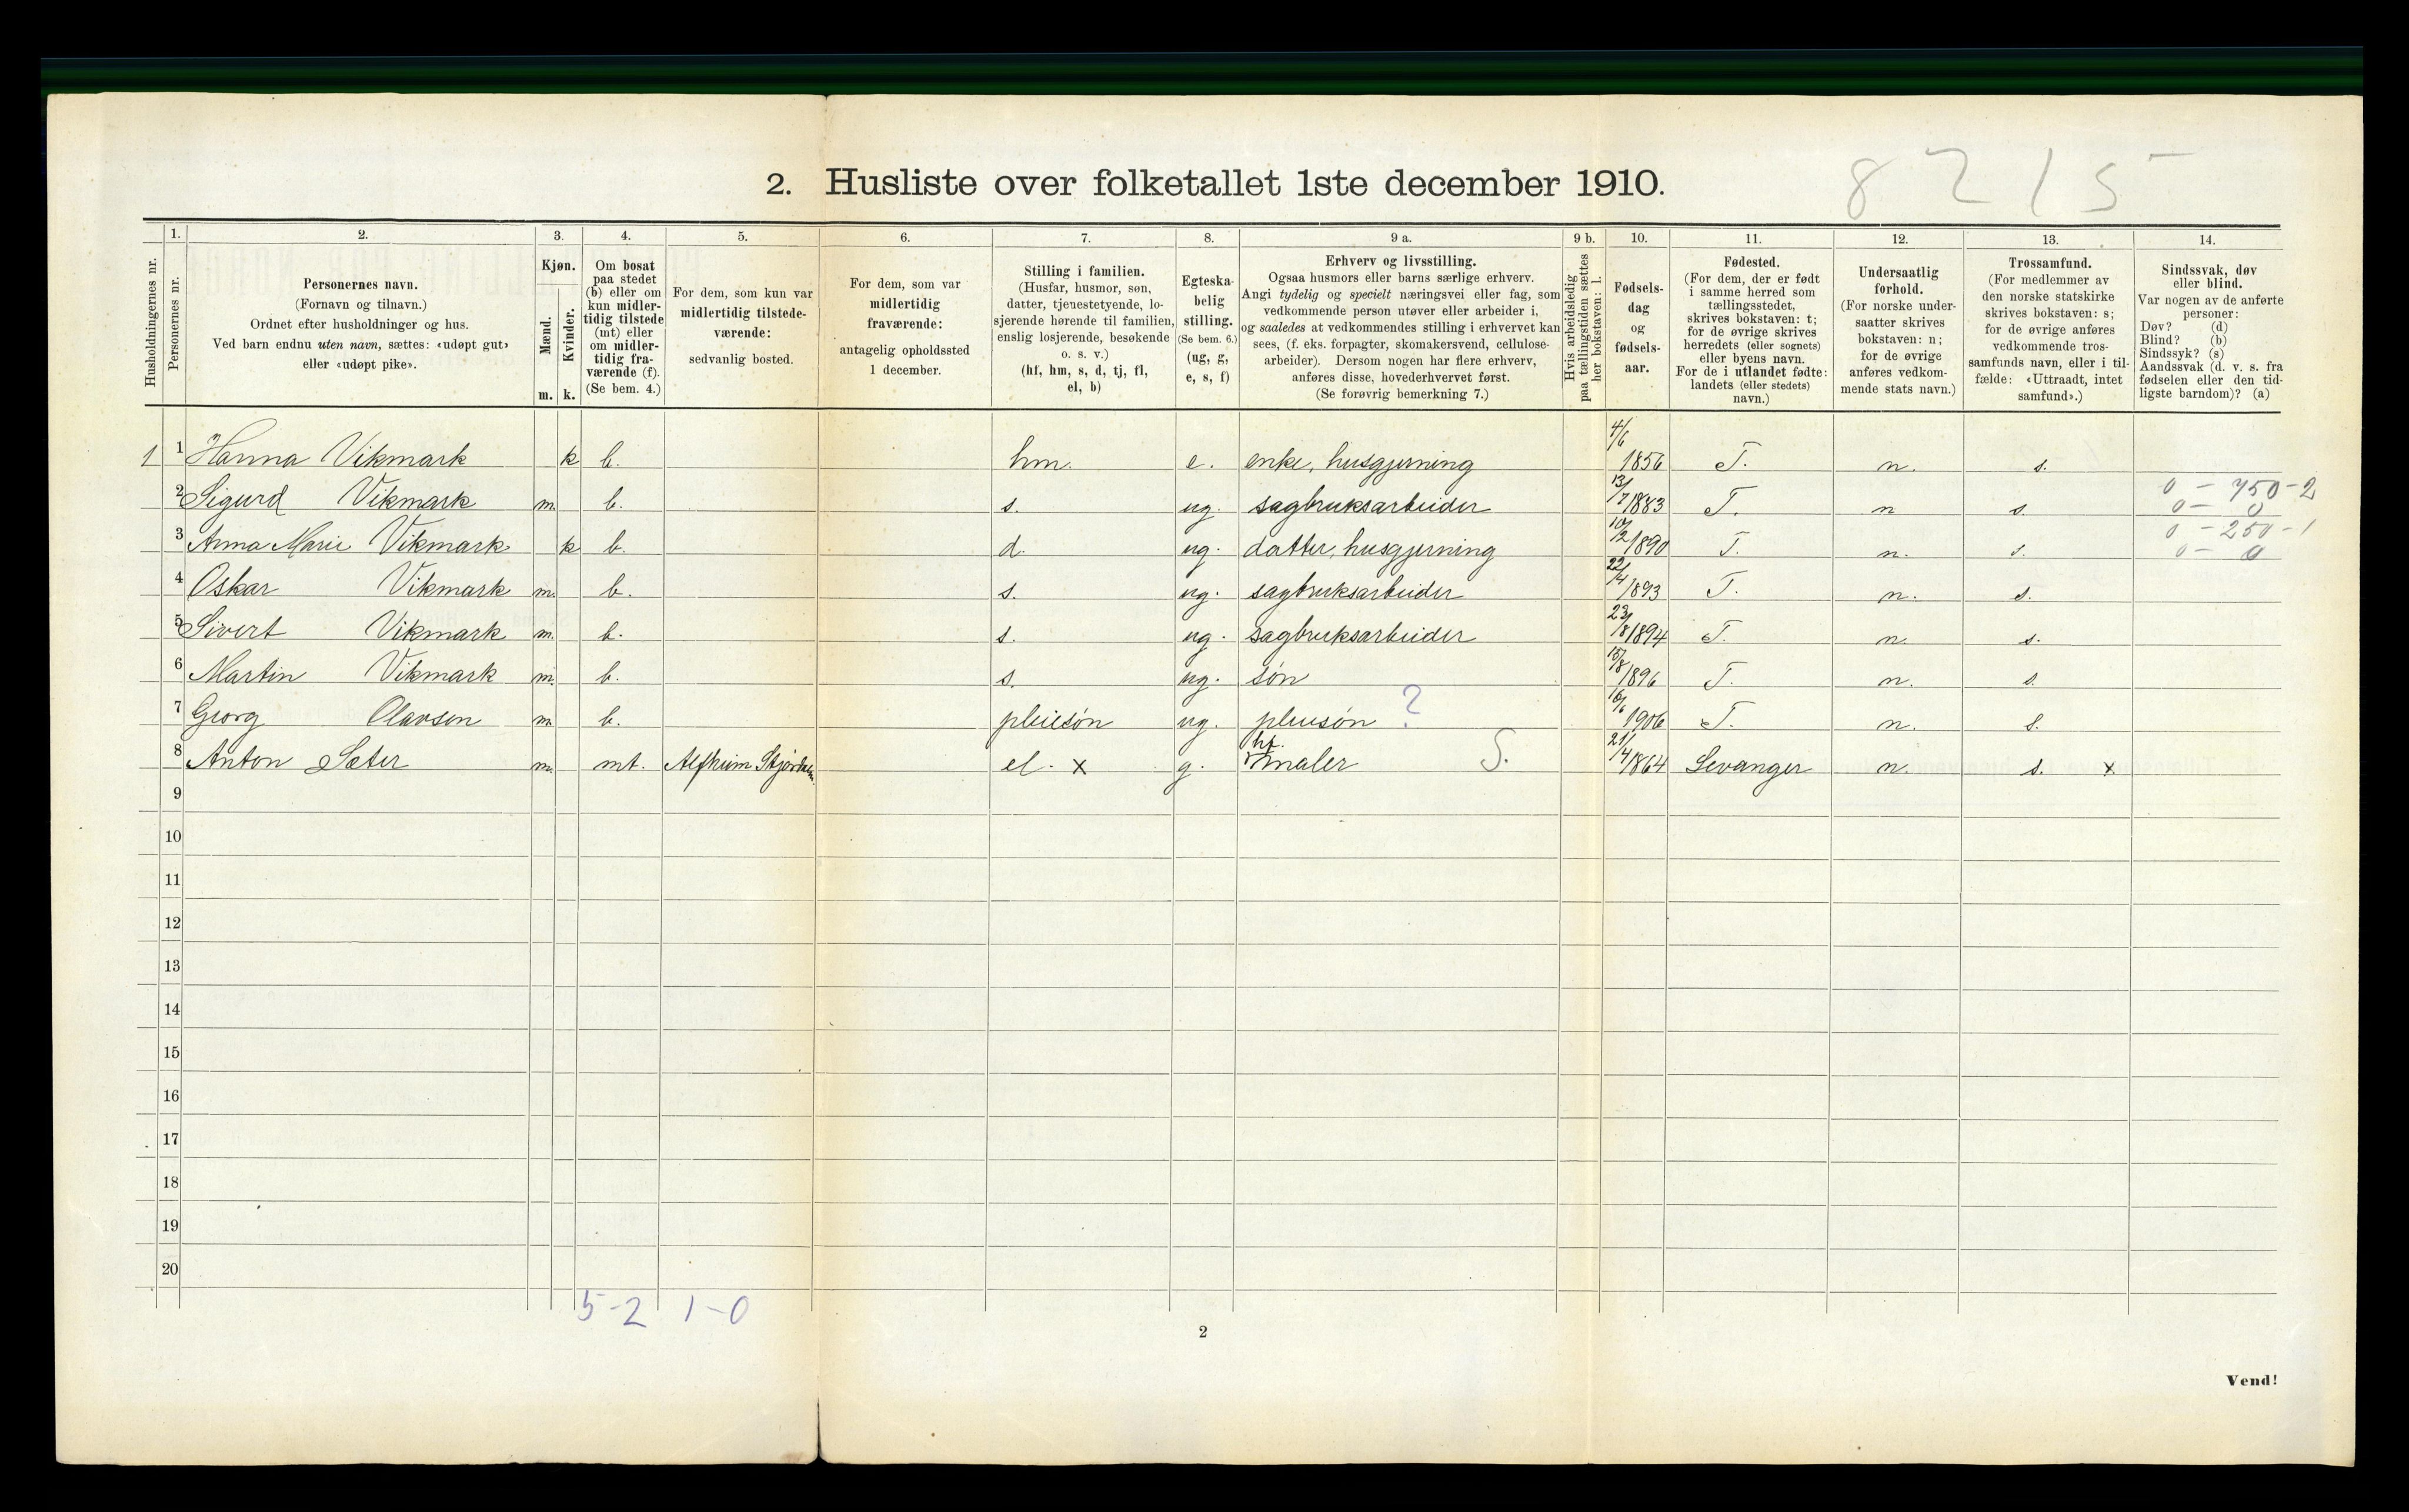 8215
2. Husliste over folketallet 1ste december 1910.
Husholdningernes nr.
1. Personernes nr.
2. Personernes navn.
(Fornavn og tilnavn.)
Ordnet efter husholdninger og hus.
Ved barn endnu uten navn, sættes: «udøpt gut»
eller «udøpt pike».
3. Kjøn.
Mænd. m.
Kvinder. k.
4. Om bosat
paa stedet
(b) eller om
kun midler-
tidig tilstede
(mt) eller
om midler-
tidig fra-
værende (f).
(Se bem. 4.)
5. For dem, som kun var
midlertidig tilstede-
værende:
sedvanlig bosted.
6. For dem, som var
midlertidig
fraværende:
antagelig opholdssted
1 december.
7. Stilling i familien.
(Husfar, husmor, søn,
datter, tjenestetyende, lo-
sjerende hørende til familien,
enslig losjerende, besøkende
o. s. v.)
(hf, hm, s, d, tj, fl,
el, b)
8. Egteska-
belig
stilling.
(Se bem. 6.)
(ug, g,
e, s, f)
9 a. Erhverv og livsstilling.
Ogsaa husmors eller barns særlige erhverv.
Angi tydelig og specielt næringsvei eller fag, som
vedkommende person utøver eller arbeider i,
og saaledes at vedkommendes stilling i erhvervet kan
sees, (f. eks. forpagter, skomakersvend, cellulose-
arbeider). Dersom nogen har flere erhverv,
anføres disse, hovederhvervet først.
(Se forøvrig bemerkning 7.)
9 b. Hvis arbeidsledig
paa tællingstiden sættes
her bokstaven: l.
10. Fødsels-
dag
og
fødsels-
aar.
11. Fødested.
(For dem, der er født
i samme herred som
tællingsstedet,
skrives bokstaven: t;
for de øvrige skrives
herredets (eller sognets)
eller byens navn.
For de i utlandet fødte:
landets (eller stedets)
navn.)
12. Undersaatlig
forhold.
(For norske under-
saatter skrives
bokstaven: n;
for de øvrige
anføres vedkom-
mende stats navn.)
13. Trossamfund.
(For medlemmer av
den norske statskirke
skrives bokstaven: s;
for de øvrige anføres
vedkommende tros-
samfunds navn, eller i til-
fælde: «Uttraadt, intet
samfund».)
14. Sindssvak, døv
eller blind.
Var nogen av de anførte
personer:
Døv? (d)
Blind? (b)
Sindssyk? (s)
Aandssvak (d. v. s. fra
fødselen eller den tid-
ligste barndom)? (a)
1 1 Hanna Vikmark k b. hm. e. enke, husgjerning 4/6 1856 T. n. s.
2 Sigurd Vikmark m. b. s. ug. sagbruksarbeider 13/7 1883 T. n s. 0 - 750 - 2
0 - 0
3 Anna Marie Vikmark k b. d. ug. datter, husgjerning 10/2 1890 T. n. s. 0 - 250 - 1
0 - 0
4 Oskar Vikmark m. b. s. ug. sagbruksarbeider 22/4 1893 T. n. s.
5 Sivert Vikmark m. b. s. ug. sagbruksarbeider 23/8 1894 T. n. s.
6 Martin Vikmark m. b. s. ug. søn 15/8 1896 T. n. s.
7 Georg Olavsen m. b. pleiesøn ug. pleiesøn ? 16/6 1906 T. n. s.
8 Anton Sæter m. mt. Alfheim Stjørdalen el. x g. hf. maler S. 21/4 1864 Levanger n. s. x
9
10
11
12
13
14
15
16
17
18
19
20
5-2 1-0
2
Vend!